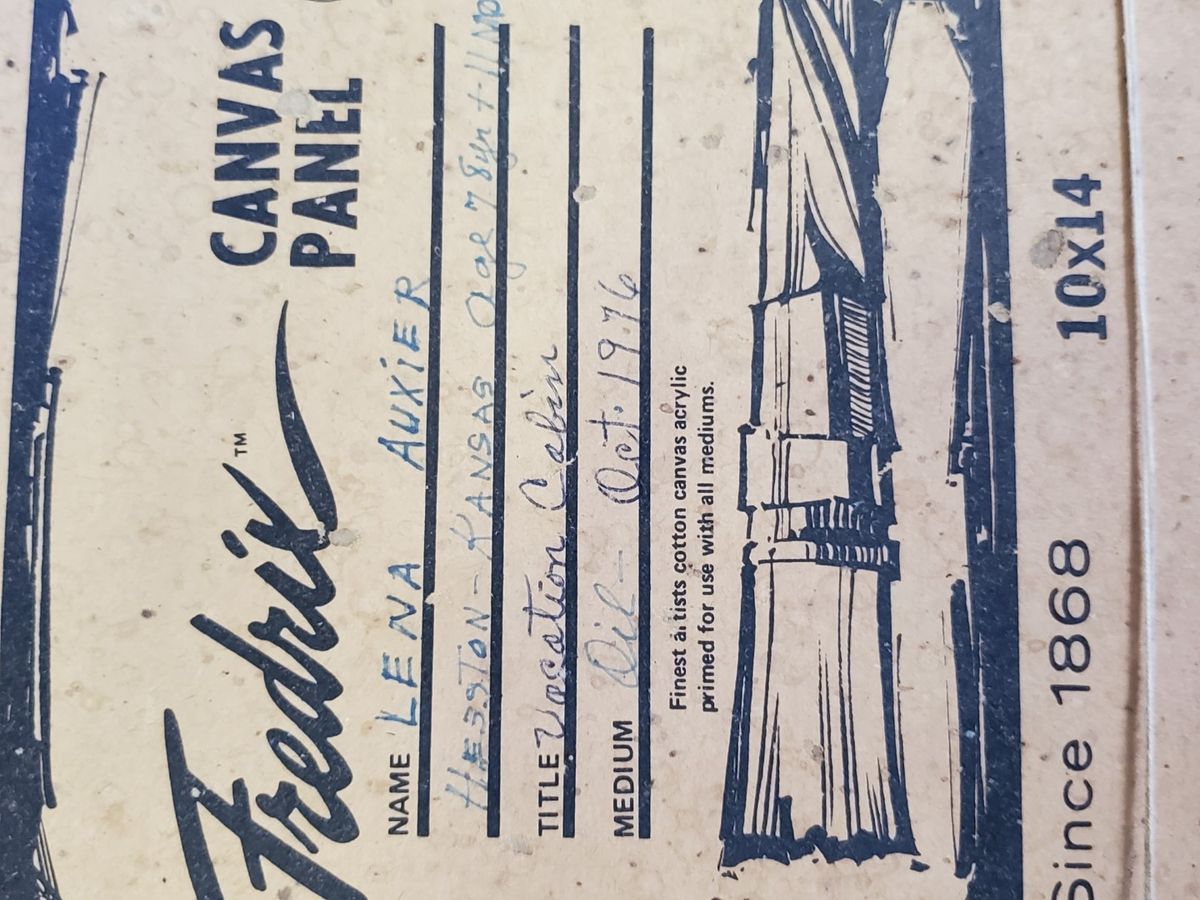 Fredrix™ CANVAS PANEL
NAME LENA AUXIER
HESSTON - KANSAS age 78yr + 11 Mo
TITLE Vacation Cabin
MEDIUM Oil - Oct. 1976
Finest artists cotton canvas acrylic
primed for use with all mediums.
Since 1868 10x14